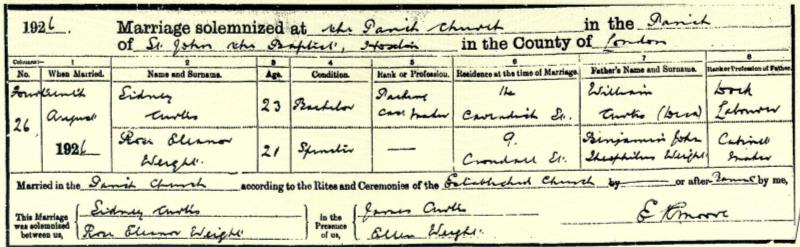 1926. Marriage solemnized at the Parish Church in the Parish
of St. John the Baptist, Hoxton in the County of London
Columns:— 1 2 3 4 5 6 7 8
No. When Married. Name and Surname. Age. Condition. Rank or Profession. Residence at the time of Marriage. Father's Name and Surname. Rank or Profession of Father.
26 Fourteenth August 1926 Sidney Curtis 23 Bachelor Packing Case Maker 14 Cavendish St. William Curtis (Decd) Dock Labourer
Rose Eleanor Weight 21 Spinster — 9. Crondall St. Benjamin John Theophilus Weight Cabinet Maker
Married in the Parish Church according to the Rites and Ceremonies of the Established Church by —— or after Banns by me,
This Marriage was solemnized between us, Sidney Curtis in the Presence of us, James Curtis
Rose Eleanor Weight Ellen Weight